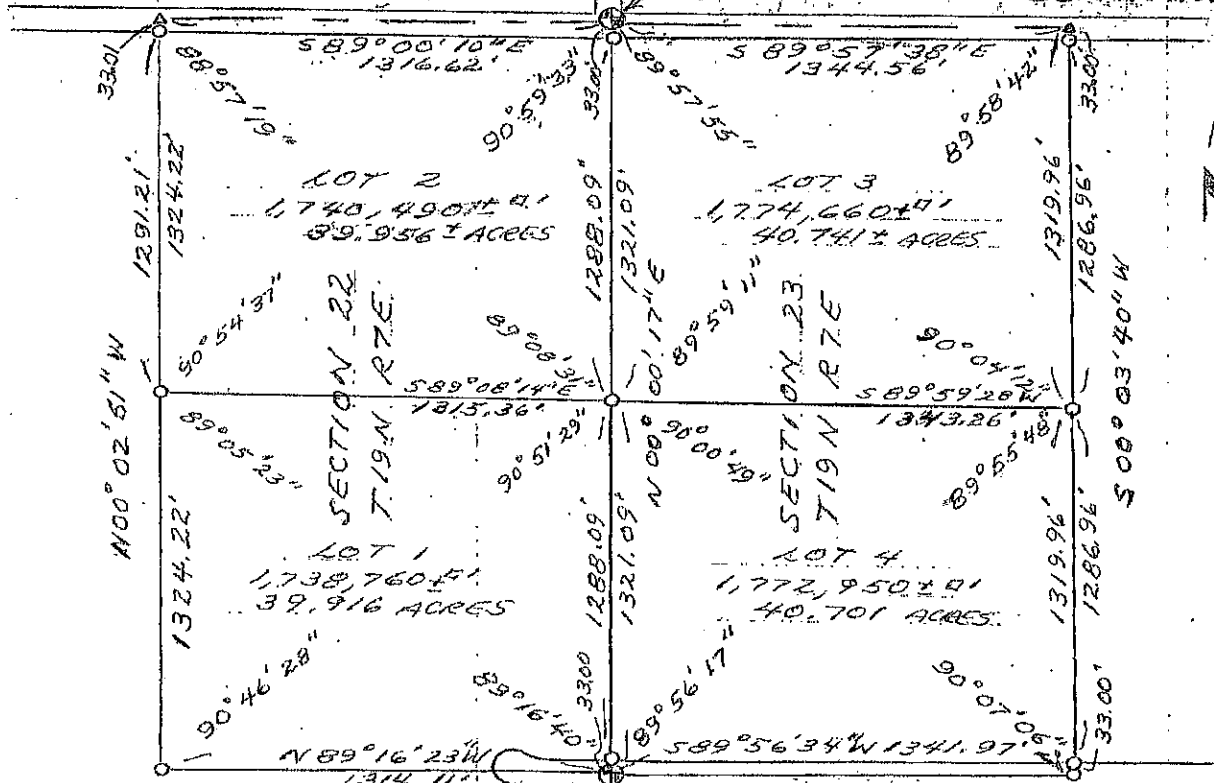 S 89° 00' 10" E
1316.62'
S 89° 57' 38" E
1344.56'
33.01
88° 57' 19"
90° 59' 33"
33.00'
89° 57' 55"
89° 58' 42"
33.00'
1291.21'
1324.22'
LOT 2
1,740,490± □'
39.956± ACRES
1288.09'
1321.09'
LOT 3
1,774,660± □'
40.741± ACRES
1319.96'
1286.96'
90° 54' 37"
SECTION 22
T.19.N. R7.E.
89° 08' 31"
N 00° 00' 17" E
89° 59' 11"
SECTION 23
T19N R7E
90° 04' 12"
S 00° 03' 40" W
S 89° 08' 14" E
1315.36'
S 89° 59' 28" W
1343.26'
N00° 02' 51" W
89° 05' 23"
90° 51' 29"
90° 00' 49"
89° 55' 48"
1324.22'
LOT 1
1,738,760± □'
39.916 ACRES
1288.09'
1321.09'
LOT 4
1,772,950± □'
40.701 ACRES
1319.96'
1286.96'
90° 46' 28"
89° 16' 40"
33.00
89° 56' 17"
90° 07' 06"
33.00'
N 89° 16' 23" W
1314.11'
S 89° 56' 34" W 1341.97'